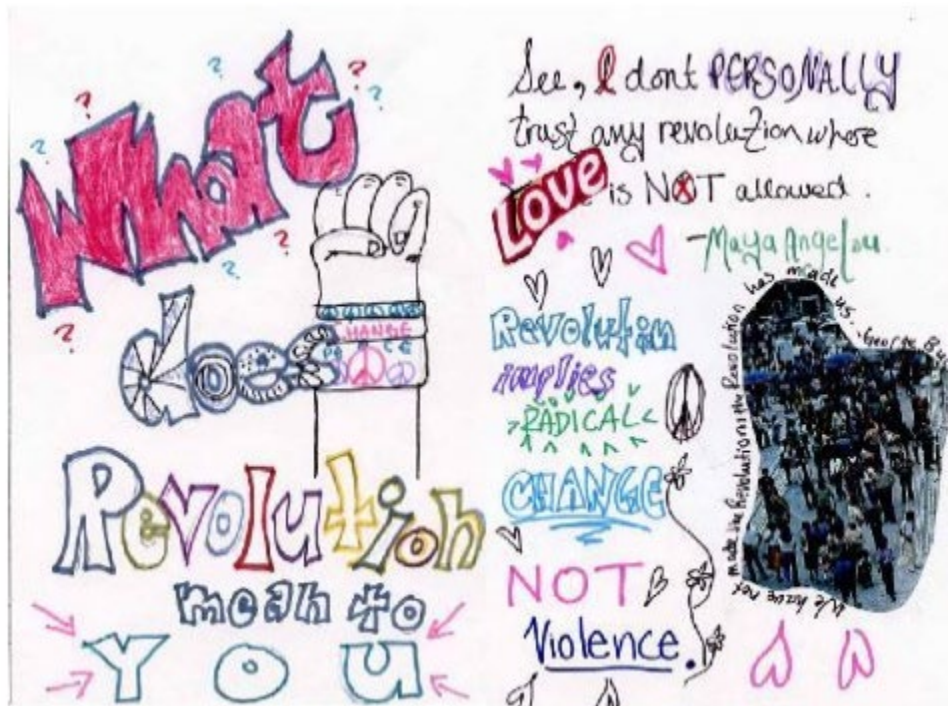 What
does
CHANGE
Revolution
mean to
YOU
See, I dont PERSONALLY
trust any revolution where
LOVE is NOT allowed.
-Maya Angelou
Revolution
implies
RADICAL
CHANGE
NOT
Violence.
We have not made the Revolution the Revolution has made us. George